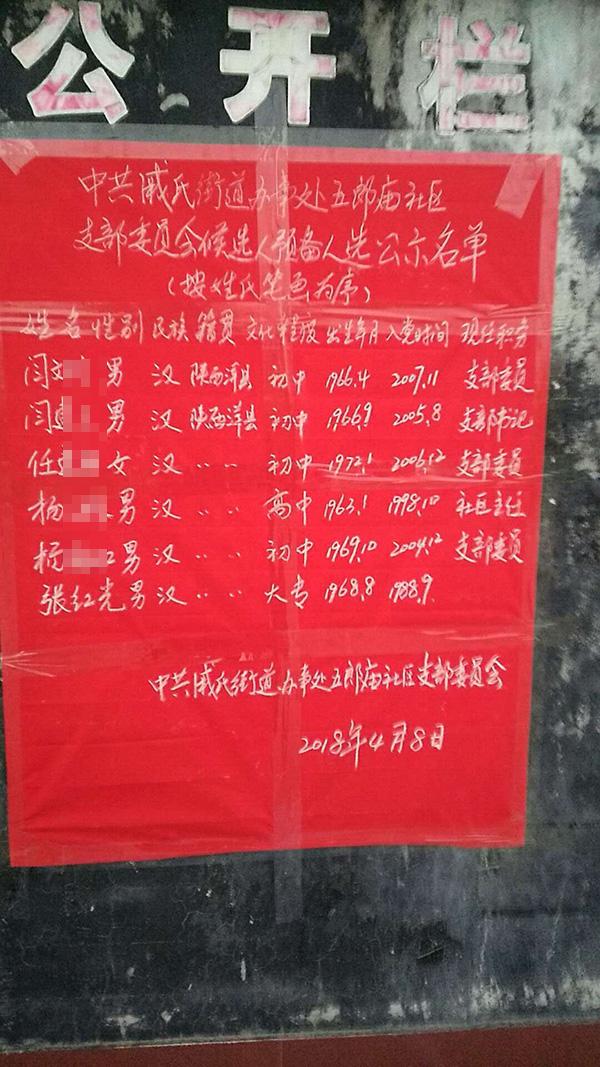 公开栏
中共戚氏街道办事处五郎庙社区
支部委员会候选人预备人选公示名单
(按姓氏笔画为序)
姓名 性别 民族 籍贯 文化程度 出生年月 入党时间 现任职务
闫 男 汉 陕西洋县 初中 1966.4 2007.11 支部委员
闫 男 汉 陕西洋县 初中 1966.9 2005.8 支部书记
任 女 汉 〃 〃 初中 1972.1 2006.12 支部委员
杨 男 汉 〃 〃 高中 1963.1 1998.10 社区主任
杨 男 汉 〃 〃 初中 1969.10 2004.12 支部委员
张红光 男 汉 〃 〃 大专 1968.8 1988.9.
中共戚氏街道办事处五郎庙社区支部委员会
2018年4月8日